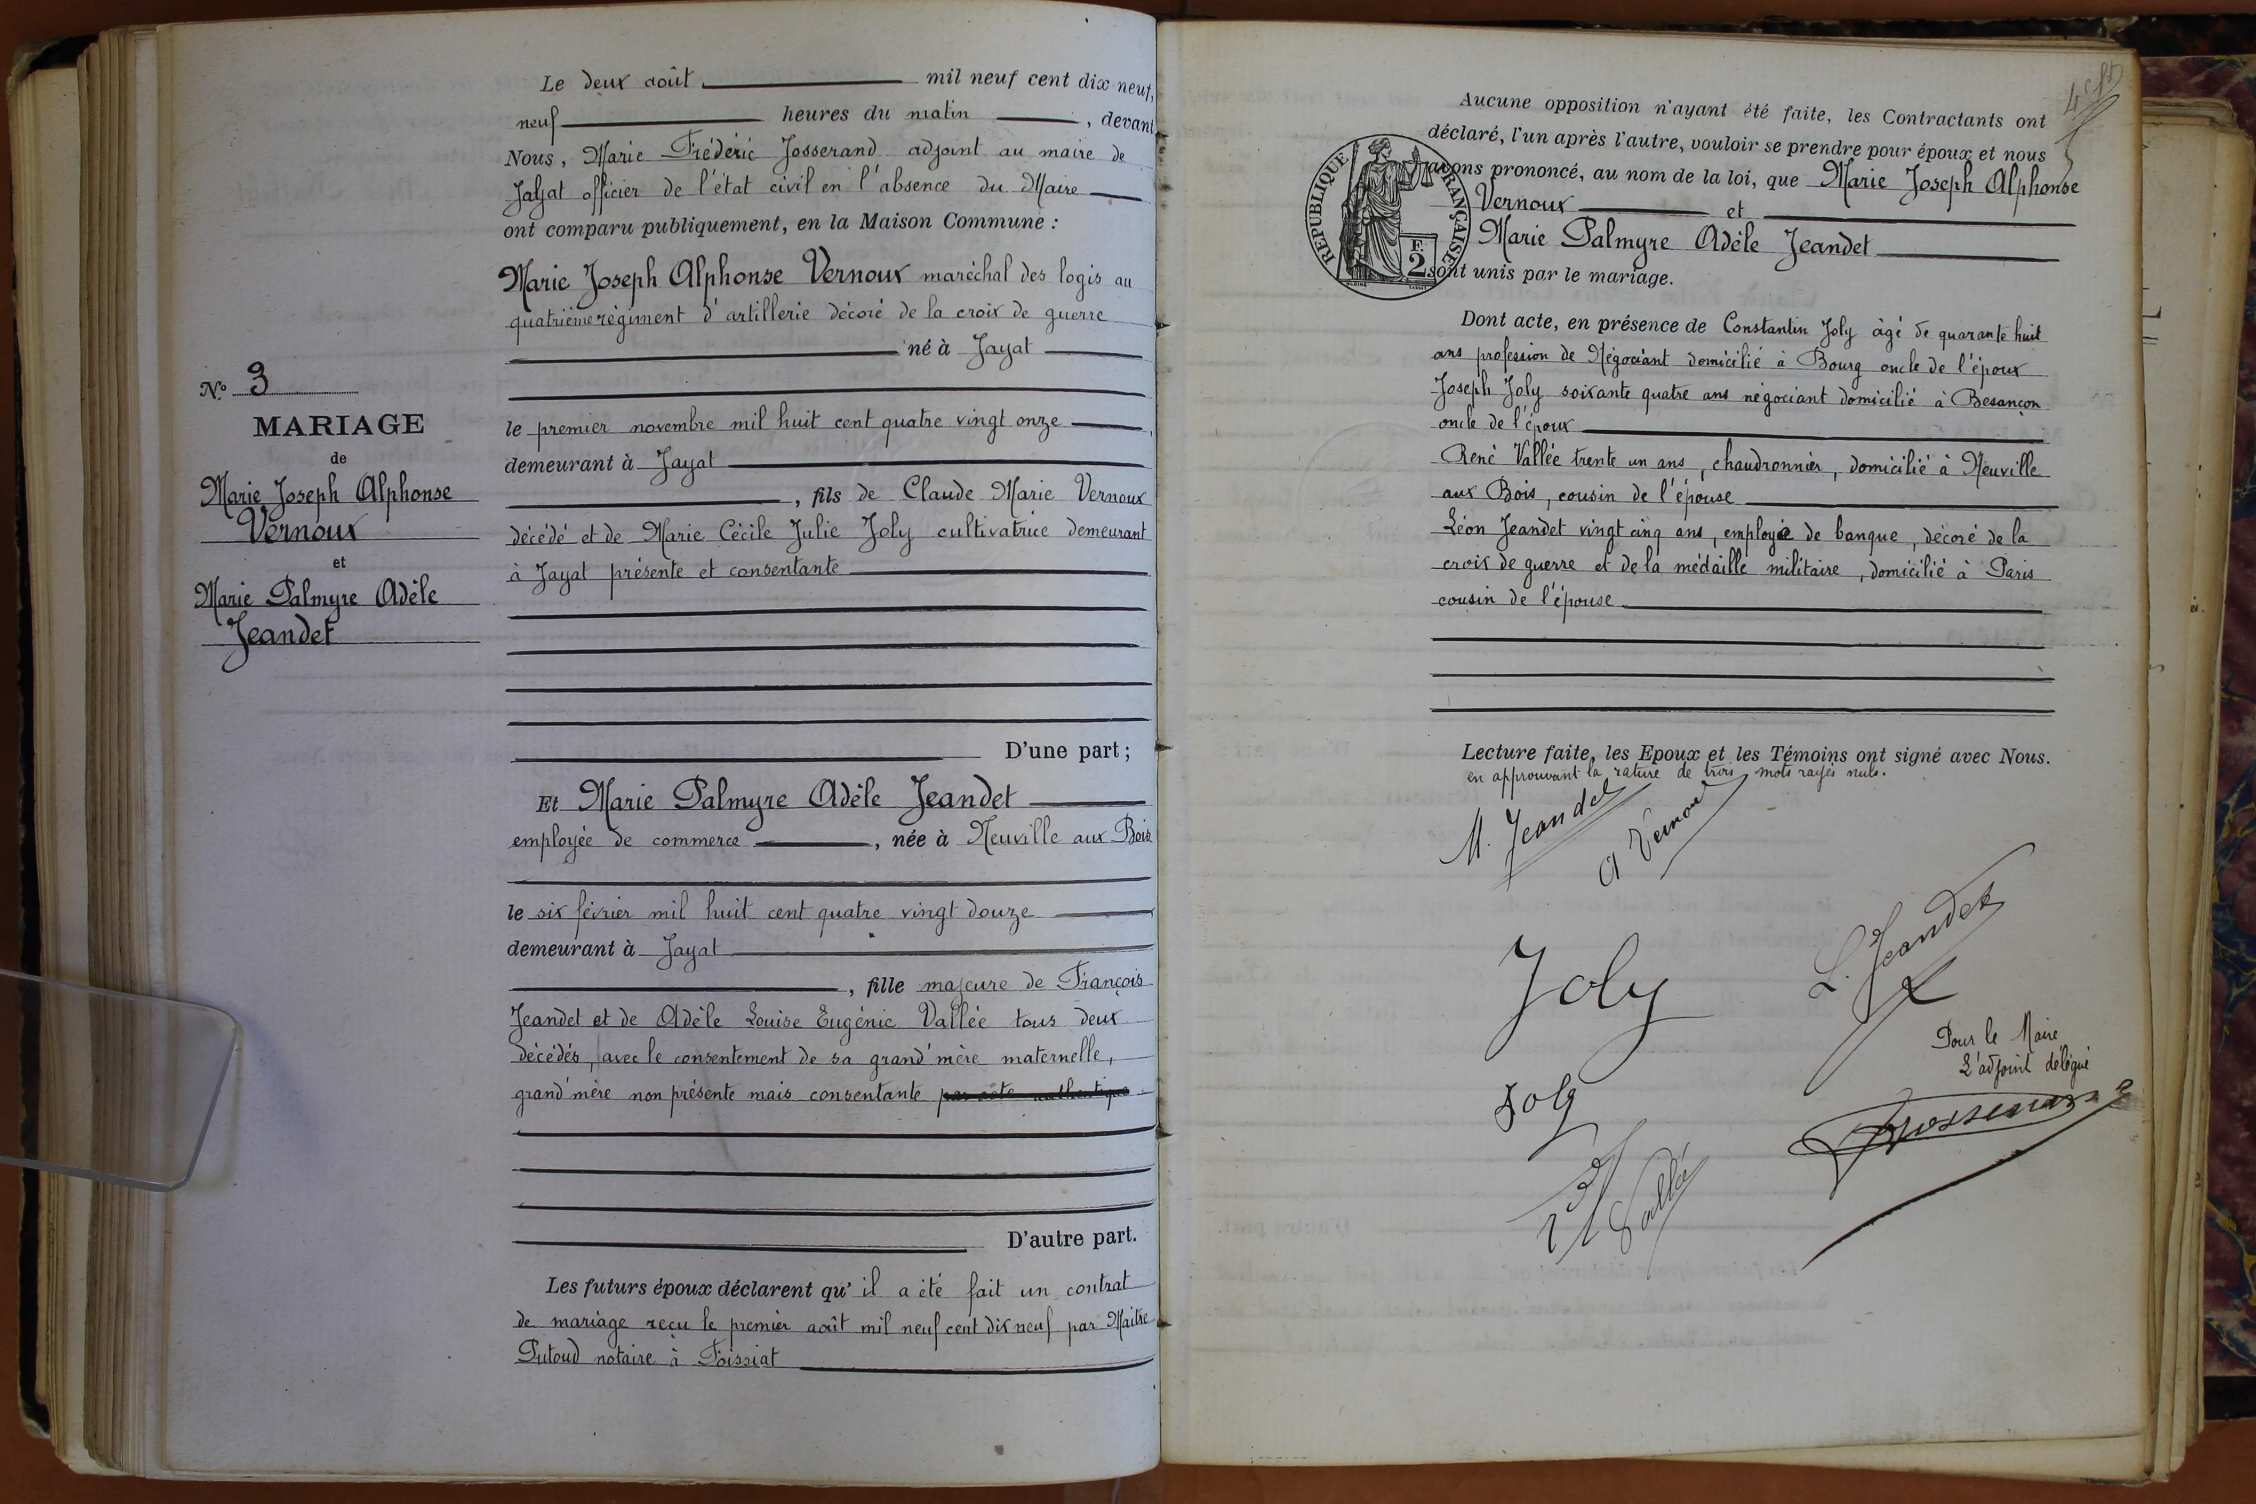 Le deux août mil neuf cent dix neuf,
neuf heures du matin, devant
Nous, Marie Frédéric Josserand adjoint au maire de
Jayat officier de l'état civil en l'absence du Maire
ont comparu publiquement, en la Maison Commune :
Marie Joseph Alphonse Vernoux maréchal des logis au
quatrième régiment d'artillerie décoré de la croix de guerre
né à Jayat
le premier novembre mil huit cent quatre vingt onze
demeurant à Jayat
, fils de Claude Marie Vernoux
décédé et de Marie Cécile Julie Joly cultivatrice demeurant
à Jayat présente et consentante
D'une part ;
Et Marie Palmyre Adèle Jeandet
employée de commerce, née à Neuville aux Bois
le six février mil huit cent quatre vingt douze
demeurant à Jayat
, fille majeure de François
Jeandet et de Adèle Louise Eugénie Vallée tous deux
décédés, avec le consentement de sa grand'mère maternelle,
grand'mère non présente mais consentante par acte authentique
D'autre part.
Les futurs époux déclarent qu'il a été fait un contrat
de mariage reçu le premier août mil neuf cent dix neuf par Maitre
Putoud notaire à Foissiat
N° 3
MARIAGE
de
Marie Joseph Alphonse
Vernoux
et
Marie Palmyre Adèle
Jeandet
Aucune opposition n'ayant été faite, les Contractants ont
déclaré, l'un après l'autre, vouloir se prendre pour époux et nous
avons prononcé, au nom de la loi, que Marie Joseph Alphonse
Vernoux et
Marie Palmyre Adèle Jeandet
sont unis par le mariage.
RÉPUBLIQUE FRANÇAISE
F.
2
Dont acte, en présence de Constantin Joly âgé de quarante huit
ans profession de Négociant domicilié à Bourg oncle de l'époux
Joseph Joly soixante quatre ans négociant domicilié à Besançon
oncle de l'époux
René Vallée trente un ans, chaudronnier, domicilié à Neuville
aux Bois, cousin de l'épouse
Léon Jeandet vingt cinq ans, employé de banque, décoré de la
croix de guerre et de la médaille militaire, domicilié à Paris
cousin de l'épouse
Lecture faite, les Epoux et les Témoins ont signé avec Nous.
en approuvant la rature de trois mots rayés nuls.
M. Jeandet
A Vernoux
L. Jeandet
Joly
Pour le Maire
L'adjoint délégué
Joly
Josserand
Vallée